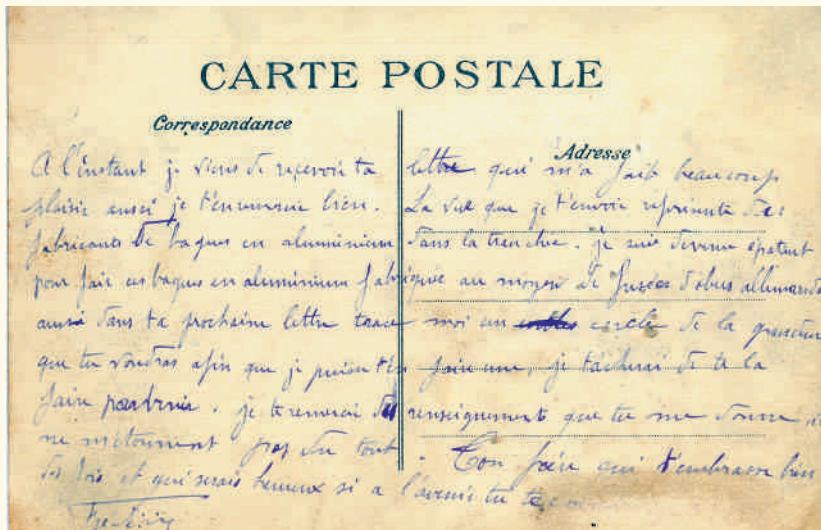 CARTE POSTALE
Correspondance
Adresse
A l'instant je viens de reçevoir ta lettre qui m'a fait beaucoup
plaisir aussi je t'en remercie bien. La vue que je t'envoie represente des
fabricants de bagues en aluminium dans la tranchée. je suis devenu épatant
pour fair ces bagues en aluminium fabriquée au moyen de fusées d'obus allemands
aussi dans ta prochaine lettre trace moi un cercle de la grosseur
que tu voudras afin que je puisse t'en faire une, je tacherai de te la
faire parvenir. je te remerci des renseignements que tu me donne
ne m'etonnent pas du tout. Ton frère qui t'embrasse bien
des fois et qui serais heureux si a l'avenir tu